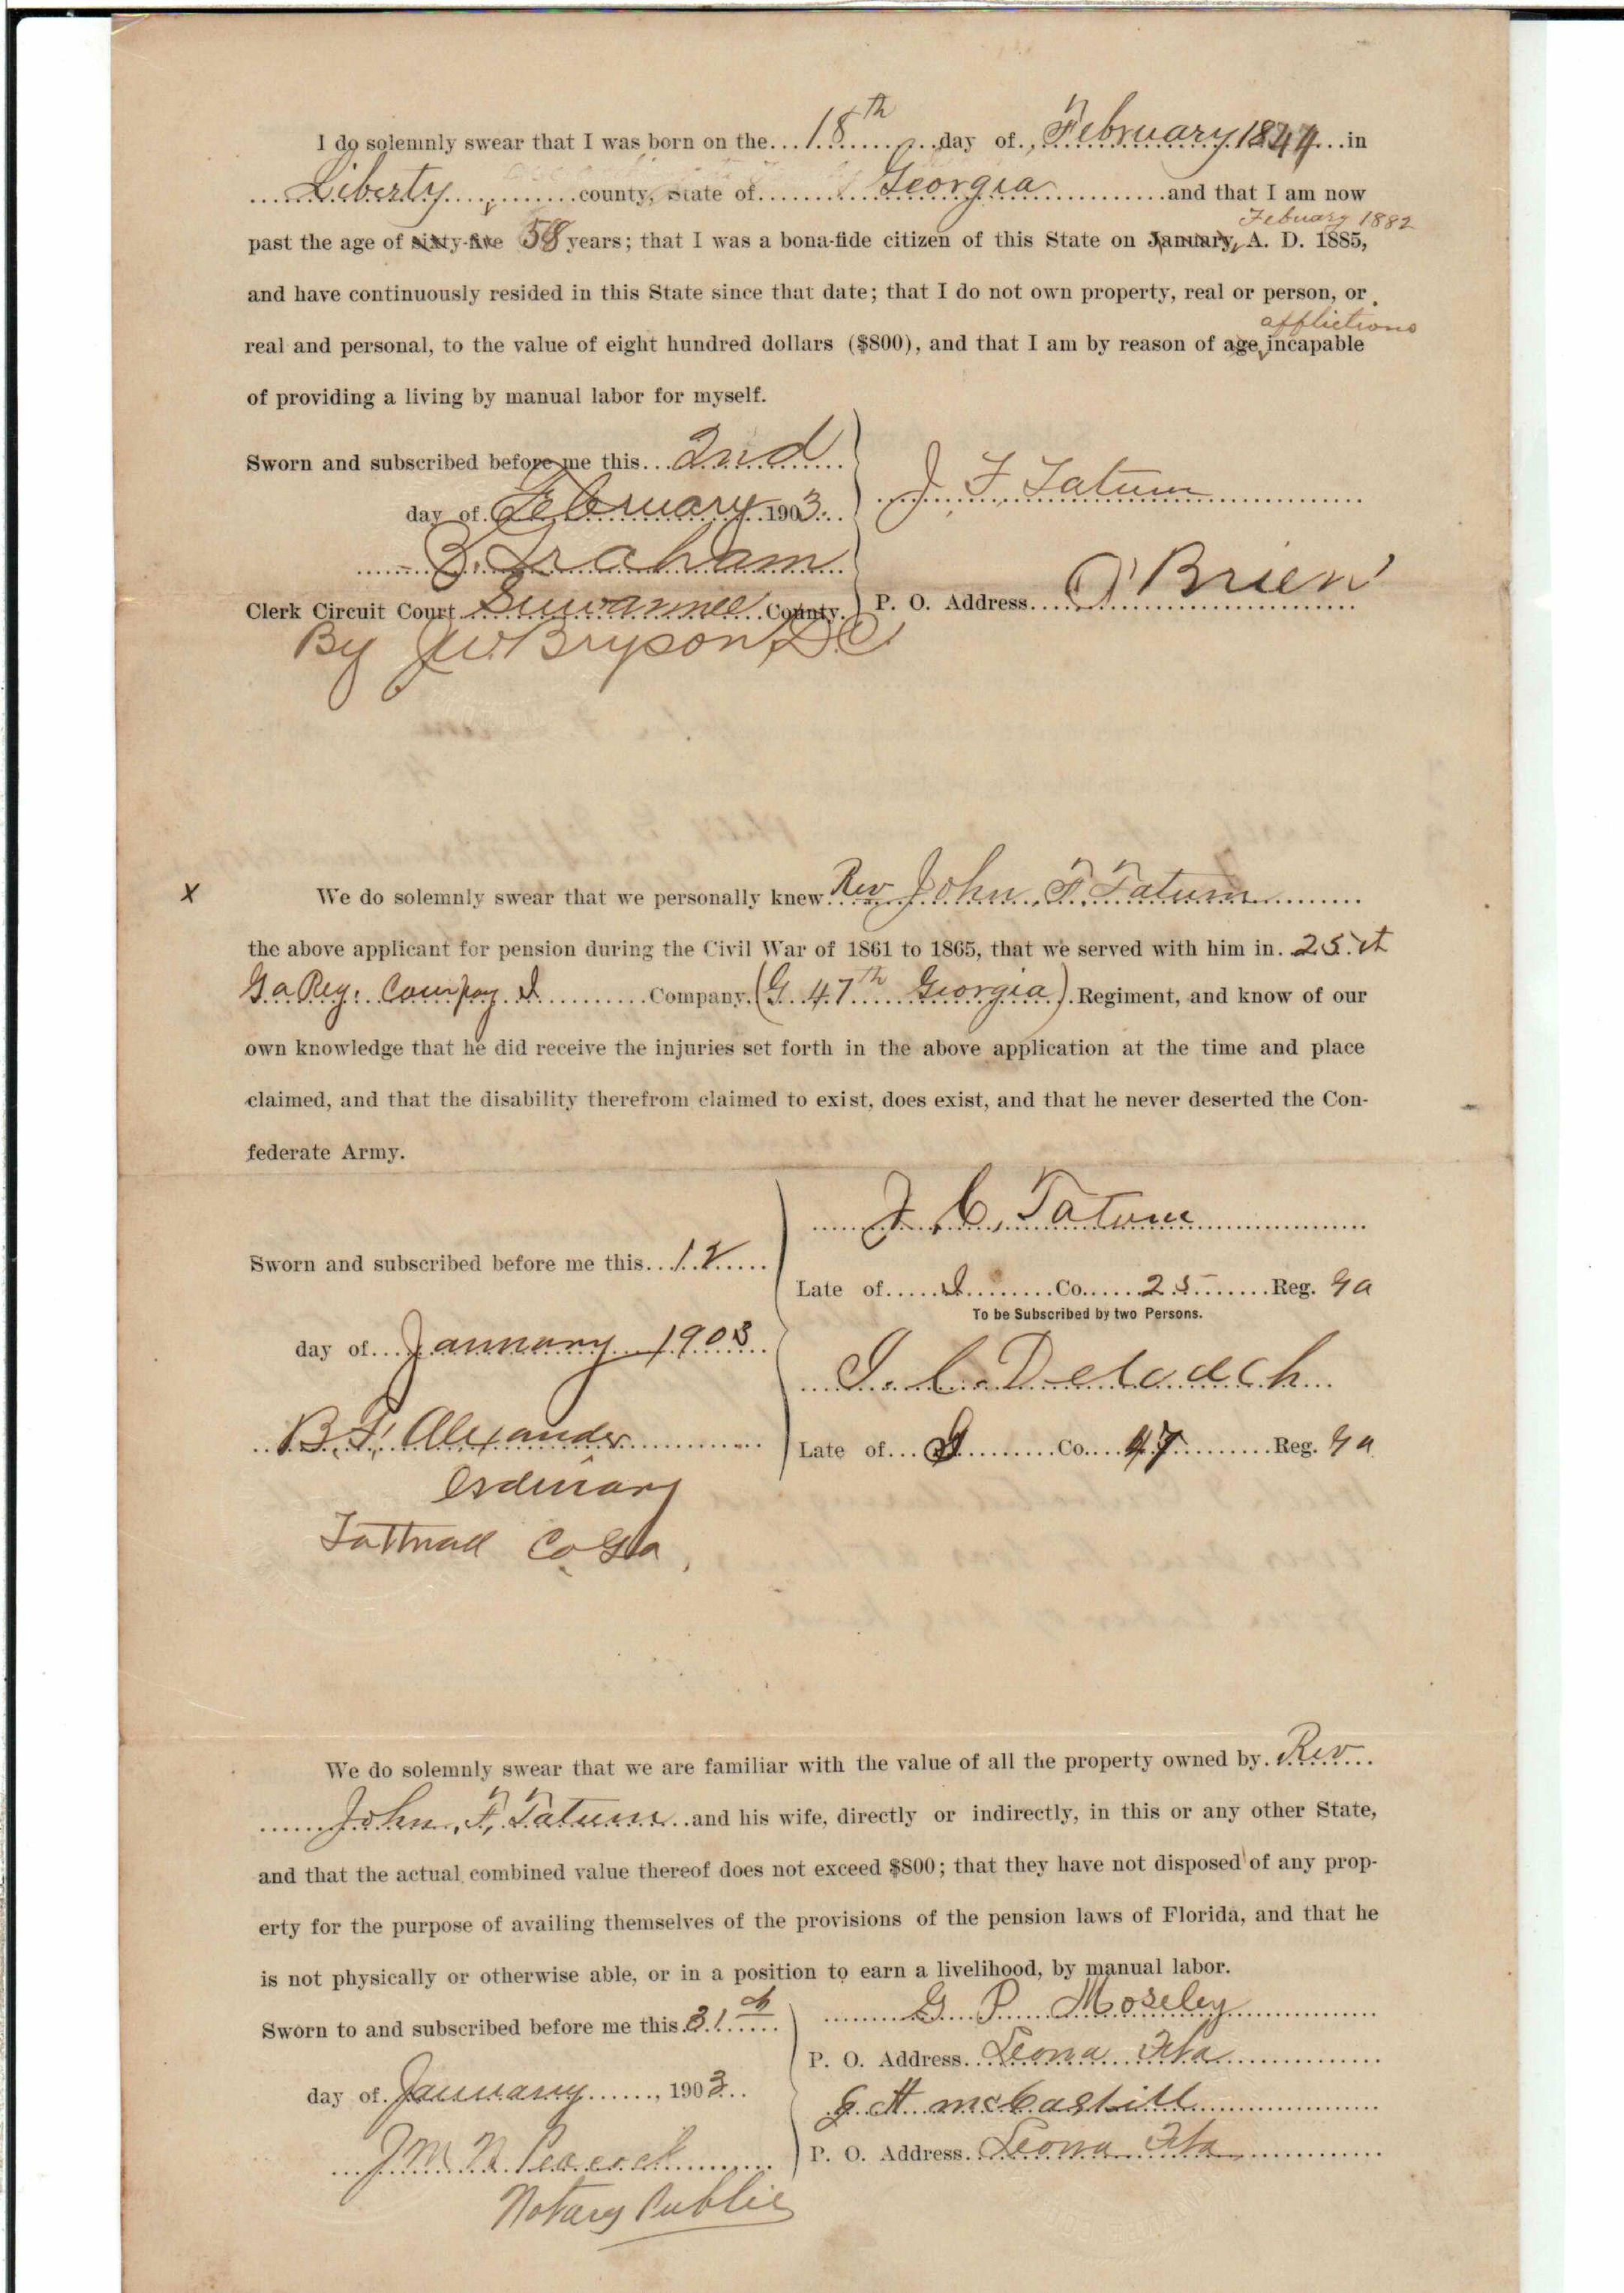 I do solemnly swear that I was born on the 18th day of February 1844 in
Liberty county, State of Georgia and that I am now
Febuary 1882
past the age of sixty-five 58 years; that I was a bona-fide citizen of this State on January, A. D. 1885,
and have continuously resided in this State since that date; that I do not own property, real or person, or
afflictions
real and personal, to the value of eight hundred dollars ($800), and that I am by reason of age, incapable
of providing a living by manual labor for myself.
Sworn and subscribed before me this 2nd
J F Tatum
day of February 1903
Graham
Clerk Circuit Court Suwannee County.
P. O. Address O'Brien
By JW Bryson, DC
x We do solemnly swear that we personally knew Rev John F. Tatum
the above applicant for pension during the Civil War of 1861 to 1865, that we served with him in 25.
Ga Reg. Company I Company (G 47th Georgia) Regiment, and know of our
own knowledge that he did receive the injuries set forth in the above application at the time and place
claimed, and that the disability therefrom claimed to exist, does exist, and that he never deserted the Con-
federate Army.
J. C. Tatum
Sworn and subscribed before me this 12
Late of I Co 25 Reg. Ga
To be Subscribed by two Persons.
day of January 1903
C. Deloach
B. F. Alexander
Late of Co 47 Reg. Ga
Ordinary
Tattnall Co Ga
We do solemnly swear that we are familiar with the value of all the property owned by Rev
John, F, Tatum and his wife, directly or indirectly, in this or any other State,
and that the actual combined value thereof does not exceed $800; that they have not disposed of any prop-
erty for the purpose of availing themselves of the provisions of the pension laws of Florida, and that he
is not physically or otherwise able, or in a position to earn a livelihood, by manual labor.
G P Moseley
Sworn to and subscribed before me this 31
P. O. Address Leona Fla
day of January, 1903
H McCaskill
J. M. N. Peacock
P. O. Address Leona Fla
Notary Public